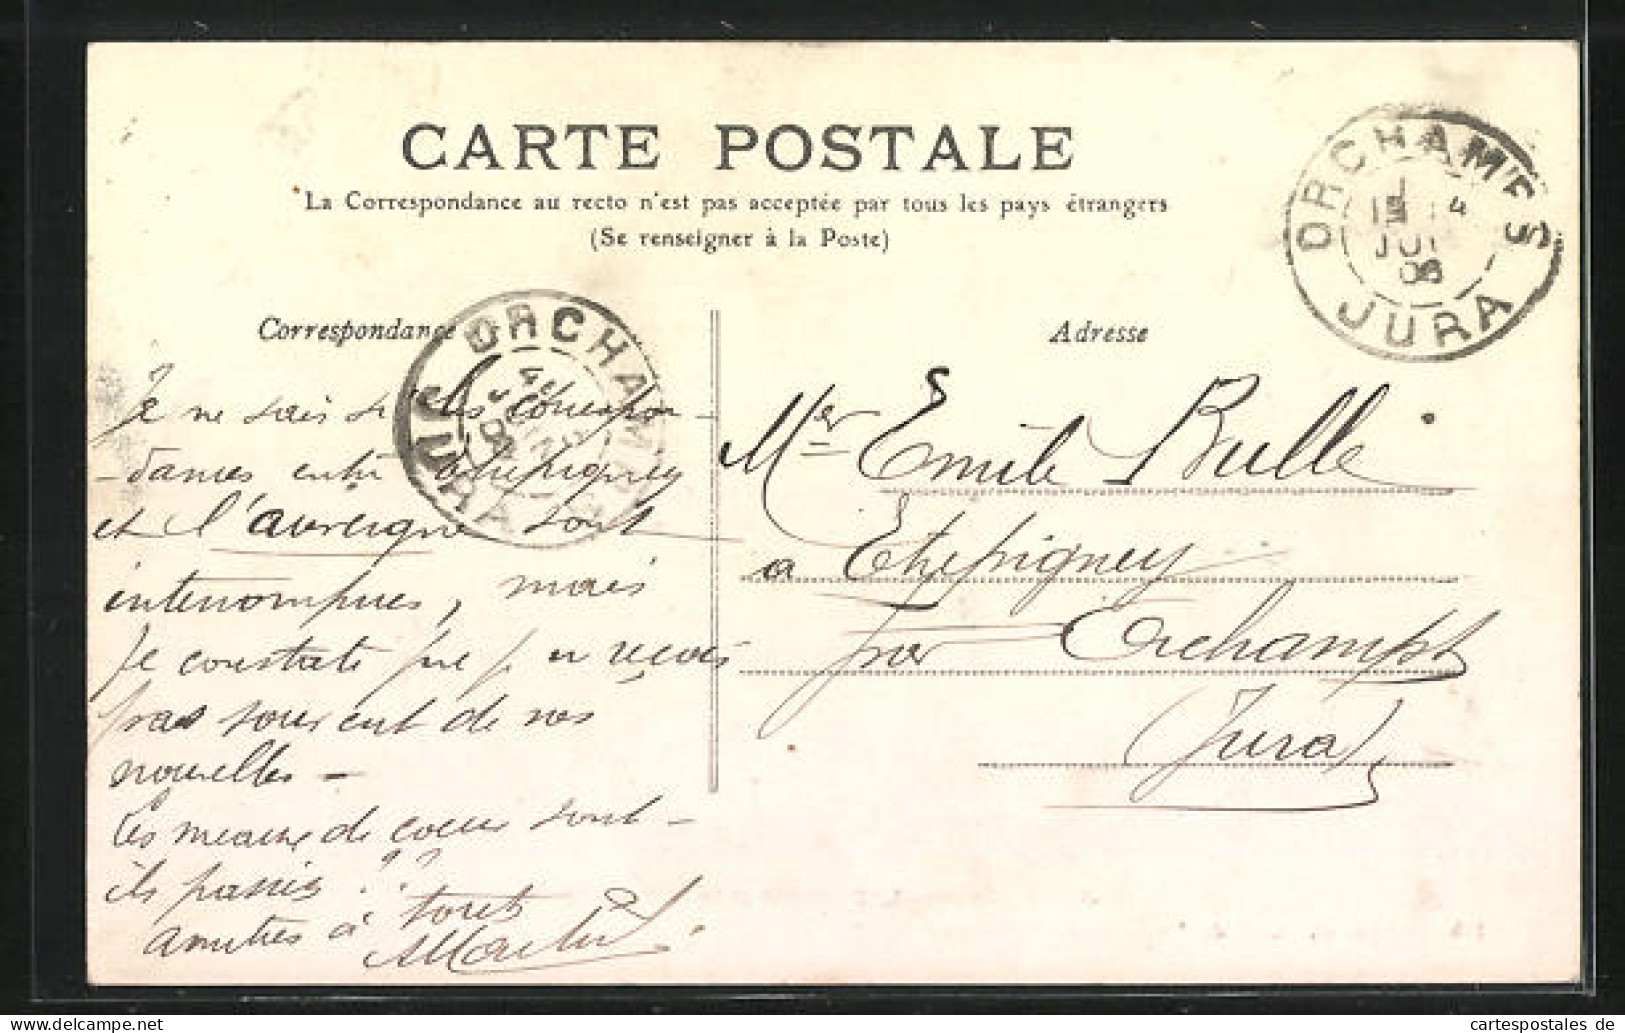 CARTE POSTALE
La Correspondance au recto n'est pas acceptée par tous les pays étrangers
(Se renseigner à la Poste)
ORCHAMPS
4
JUI
06
JURA
Correspondance
ORCHAMPS
JURA
Adresse
Je ne sais si les correspon-
-dances entre Etrepigney
et l'auvergne sont
interrompues, mais
je constate que je ne reçois
pas souvent de vos
nouvelles -
Les meaux de coeur sont-
ils passés ??
amitiés à tous
Emile Bulle
a Etrepigney
par Orchamps
(Jura)
cartespostales de
www.delcampe.net